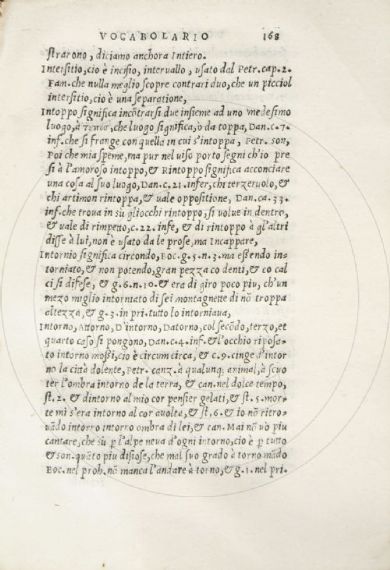 VOCABOLARIO 168
strarono, diciamo anchora Intiero.
Interstitio, cio è inciso, intervallo, usato dal Petr. cap. 2.
Fam. che nulla meglio scopre contrari duo, che un picciol
interstitio, cio è una separatione,
Intoppo significa incõtrarsi due insieme ad uno medesimo
luogo, che luogo significa, o da toppa, Dan. c. 7.
inf. che si frange con quella in cui s'intoppa, Petr. son,
Poi che mia speme, ma pur nel uiso porto segni ch'io pre
si à l'amoroso intoppo, & Rintoppo significa acconciare
una cosa al suo luogo, Dan. c. 21. infer, chi terzeruolo, &
chi artimon rintoppa, & vale oppositione, Dan. ca. 33.
inf. che troua in sù gliocchi rintoppo, si uolue in dentro,
& uale di rimpetto, c. 22. infe, & di rintoppo à gl'altri
disse à lui, non è usato da le prose, ma Incappare,
Intornio significa circondo, Boc. g. 5. n. 3. ma essendo in-
torniato, & non potendo, gran pezza co denti, & co cal
ci si difese, & g. 6. n. 10. & era di giro poco piu, ch'un
mezo miglio intorniato di sei montagnette di nõ troppa
altezza, & g. 3. in pri. tutto lo intorniaua,
Intorno, Attorno, D'intorno, Datorno, col secõdo, terzo, et
quarto caso si pongono, Dan. c. 4. inf. & l'occhio riposa-
to intorno mossi, cio è circum circa, & c. 9. cinge d'intor
no la città dolente, Petr. canz. à qualunq; animal, à scuo
ter l'ombra intorno de la terra, & can. nel dolce tempo,
st. 2. & dintorno al mio cor pensier gelati, & st. 5. mor-
te mi s'era intorno al cor auolta, & st. 6. & io nõ ritro-
uãdo intorno intorno ombra di lei, & can. Mai nõ uò piu
cantare, che sù p l'alpe neua d'ogni intorno, cio è p tutto
& son. quãto piu disiose, che mal suo grado à torno mãdo
Boc. nel proh. nõ manca l'andare à torno, & g. 1. nel pri.